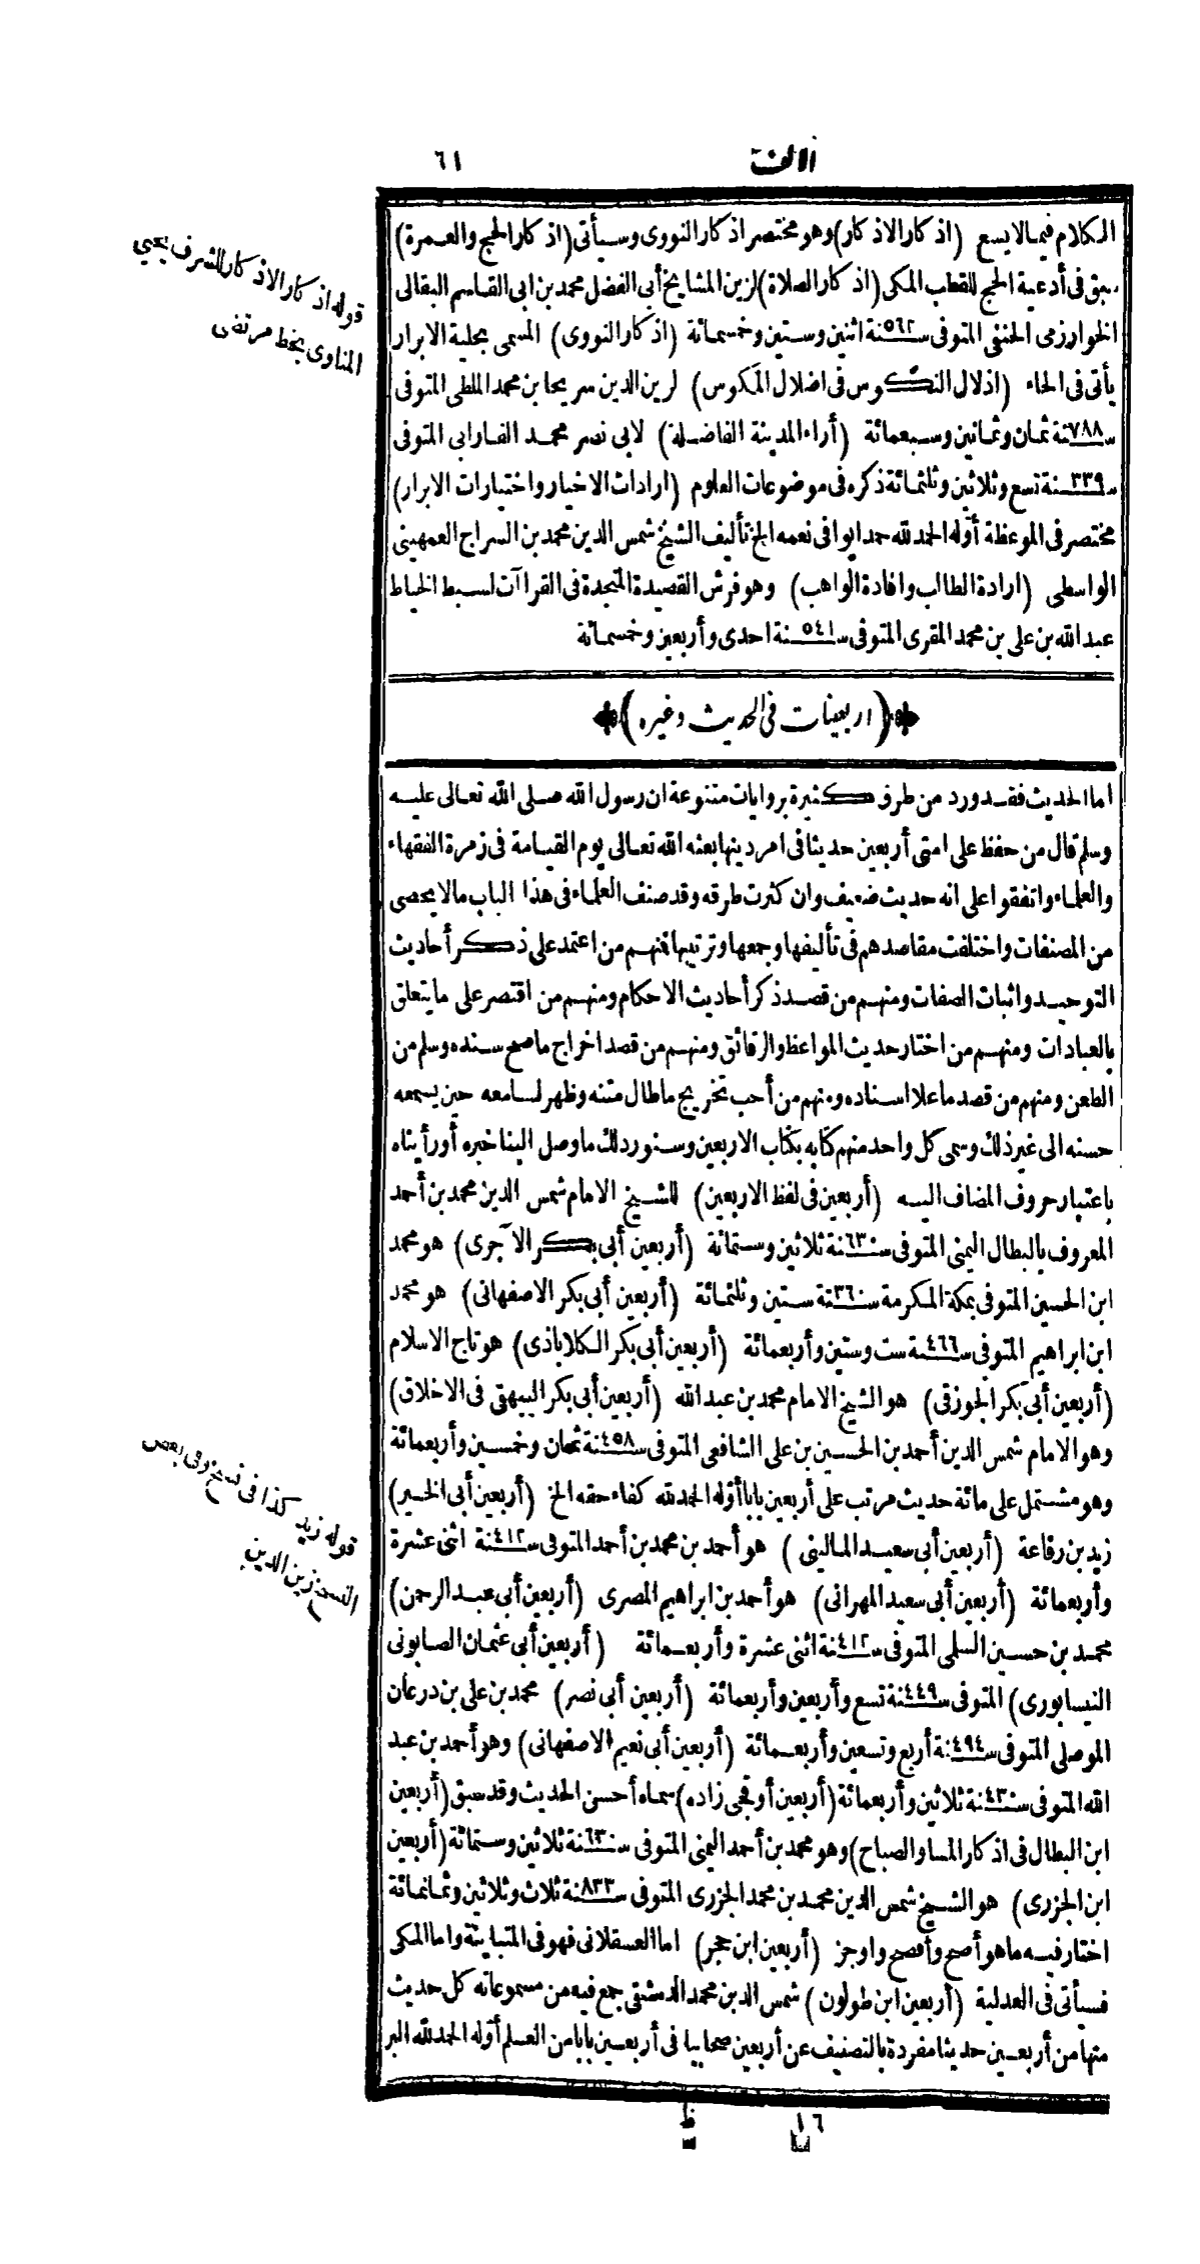 الالف ٦١
الكلام فيما لا يسع (اذكار الاذكار) وهو مختصر اذكار النووى وسيأتى (اذكار الحج والعمرة)
سبق فى أدعية الحج للقطب المكى (اذكار الصلاة) لزين المشايخ أبى الفضل محمد بن ابى القاسم البقالى
الخوارزمى الحنفى المتوفى سنة ٥٦٢ اثنين وستين وخمسمائة (اذكار النووى) المسمى بحلية الابرار
يأتى فى الحاء (اذلال النكوس فى اضلال المكوس) لزين الدين سريحا بن محمد الملطى المتوفى
سنة ٧٨٨ ثمان وثمانين وسبعمائة (أراء المدينة الفاضلة) لابى نصر محمد الفارابى المتوفى
سنة ٣٣٩ تسع وثلاثين وثلثمائة ذكره فى موضوعات العلوم (ارادات الاخيار واختيارات الابرار)
مختصر فى الموعظة أوله الحمد لله حمدا يوافى نعمه الخ تأليف الشيخ شمس الدين محمد بن السراج العمهينى
الواسطى (ارادة الطالب وافادة الواهب) وهو فرش القصيدة المنجدة فى القراآت لسبط الخياط
عبد الله بن على بن محمد المقرى المتوفى سنة ٥٤١ احدى وأربعين وخمسمائة
(اربعينات فى الحديث وغيره)
اما الحديث فقد ورد من طرق كثيرة بروايات متنوعة ان رسول الله صلى الله تعالى عليه
وسلم قال من حفظ على امتى أربعين حديثا فى امر دينها بعثه الله تعالى يوم القيامة فى زمرة الفقهاء
والعلماء واتفقوا على انه حديث ضعيف وان كثرت طرقه وقد صنف العلماء فى هذا الباب مالا يحصى
من المصنفات واختلفت مقاصدهم فى تأليفها وجمعها وترتيبها فمنهم من اعتمد على ذكر أحاديث
التوحيد واثبات الصفات ومنهم من قصد ذكر أحاديث الاحكام ومنهم من اقتصر على ما يتعلق
بالعبادات ومنهم من اختار حديث المواعظ والرقائق ومنهم من قصد اخراج ما صح سنده وسلم من
الطعن ومنهم من قصد ما علا اسناده ومنهم من أحب تخريج ما طال متنه وظهر لسامعه حين يسمعه
حسنه الى غير ذلك وسمى كل واحد منهم كتابه بكتاب الاربعين وسنورد لك ما وصل الينا خبره أو رأيناه
باعتبار حروف المضاف اليه (أربعين فى لفظ الاربعين) للشيخ الامام شمس الدين محمد بن أحمد
المعروف بالبطال اليمنى المتوفى سنة ٦٣٠ ثلاثين وستمائة (أربعين أبى بكر الآجرى) هو محمد
ابن الحسين المتوفى بمكة المكرمة سنة ٣٦٠ ستين وثلثمائة (أربعين أبى بكر الاصفهانى) هو محمد
ابن ابراهيم المتوفى سنة ٤٦٦ ست وستين وأربعمائة (أربعين أبى بكر الكلاباذى) هو تاج الاسلام
(أربعين أبى بكر الجوزقى) هو الشيخ الامام محمد بن عبد الله (أربعين أبى بكر البيهقى فى الاخلاق)
وهو الامام شمس الدين أحمد بن الحسين بن على الشافعى المتوفى سنة ٤٥٨ ثمان وخمسين وأربعمائة
وهو مشتمل على مائة حديث مرتب على أربعين بابا أوله الحمد لله كفاء حقه الخ (أربعين أبى الخير)
زيد بن رفاعة (أربعين أبى سعيد المالينى) هو أحمد بن محمد بن أحمد المتوفى سنة ٤١٢ اثنى عشرة
وأربعمائة (أربعين أبى سعيد المهرانى) هو أحمد بن ابراهيم المصرى (أربعين أبى عبد الرحمن)
محمد بن حسين السلمى المتوفى سنة ٤١٢ اثنى عشرة وأربعمائة (أربعين أبى عثمان الصابونى
النيسابورى) المتوفى سنة ٤٤٩ تسع وأربعين وأربعمائة (أربعين أبى نصر) محمد بن على بن درعان
الموصلى المتوفى سنة ٤٩٤ أربع وتسعين وأربعمائة (أربعين أبى نعيم الاصفهانى) وهو أحمد بن عبد
الله المتوفى سنة ٤٣٠ ثلاثين وأربعمائة (أربعين أوقجى زاده) سماه أحسن الحديث وقد سبق (أربعين
ابن البطال فى اذكار المسا والصباح) وهو محمد بن أحمد اليمنى المتوفى سنة ٦٣٠ ثلاثين وستمائة (أربعين
ابن الجزرى) هو الشيخ شمس الدين محمد بن محمد الجزرى المتوفى سنة ٨٣٣ ثلاث وثلاثين وثمانمائة
اختار فيه ما هو أصح وأفصح واوجز (أربعين ابن حجر) اما العسقلانى فهو فى المتباينة واما المكى
فسيأتى فى العدلية (أربعين ابن طولون) شمس الدين محمد الدمشقى جمع فيه من مسموعاته كل حديث
منها من أربعين حديثا مفردة بالتصنيف عن أربعين صحابيا فى أربعين بابا من العلم أوله الحمد لله البر
قوله اذكار الاذكار للشرف يحيى
المناوى بخط مرتضى
قوله زيد كذا فى نسخ وفى بعض
النسخ زين الدين
١٦ ظ